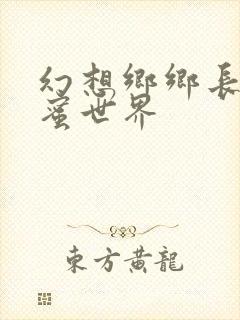 幻想鄉鄉長
蜜世界
東方黄龍